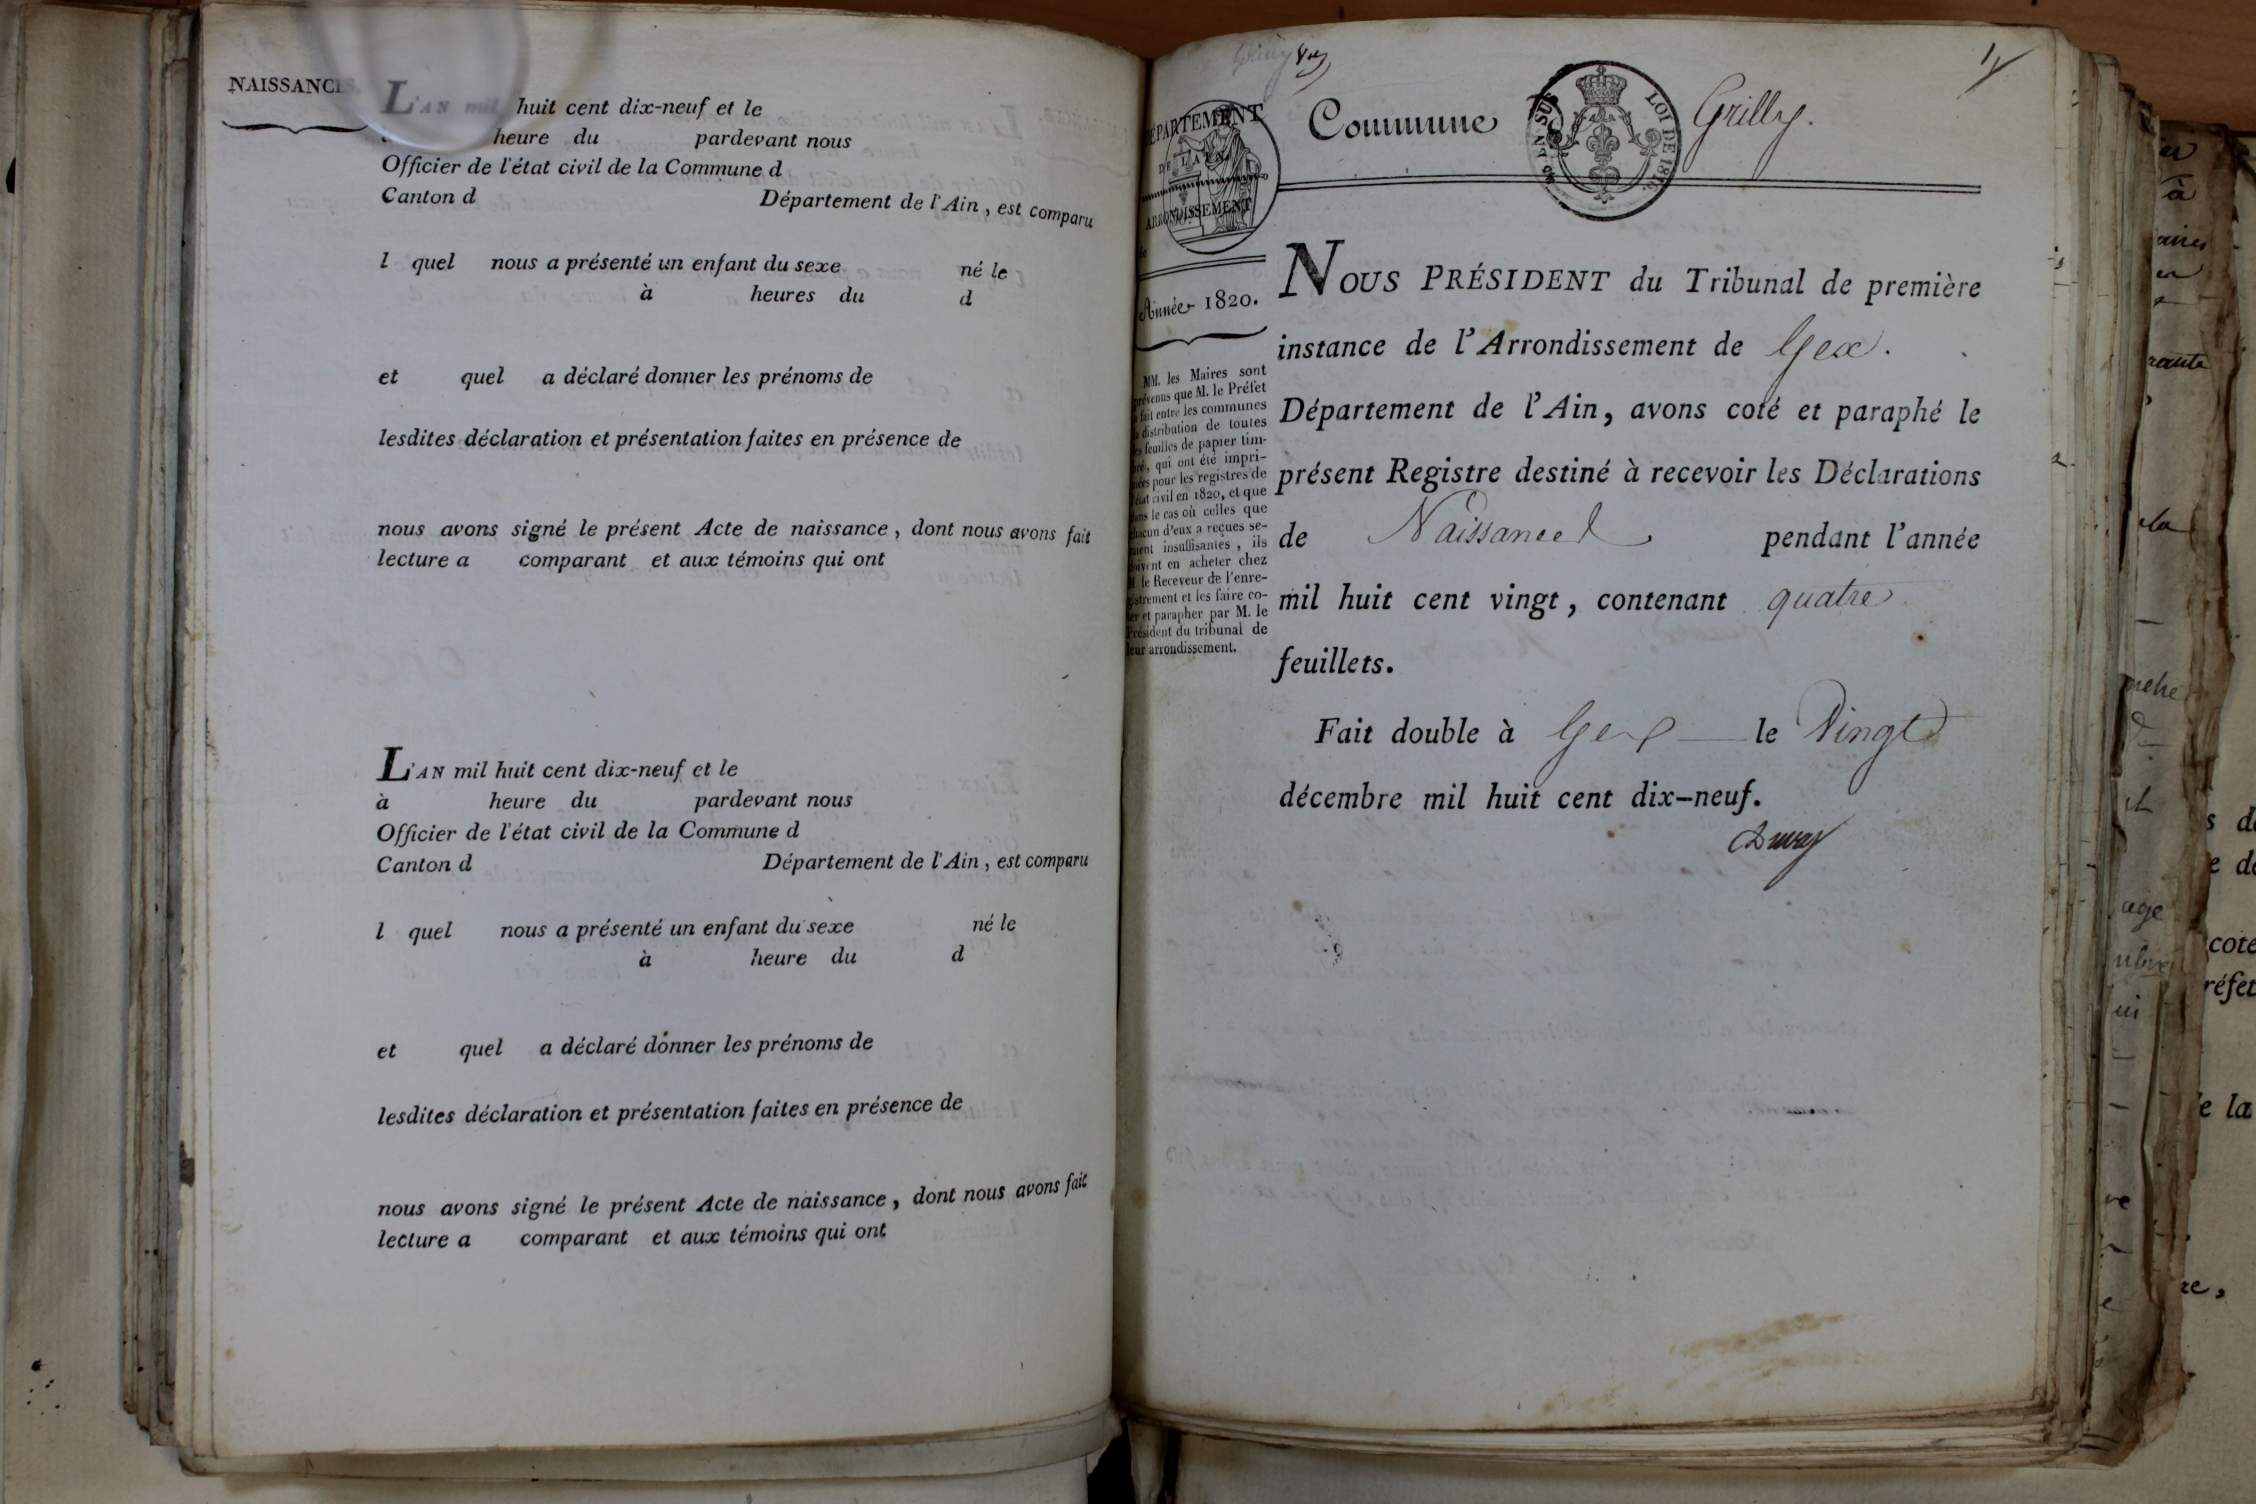 NAISSANCES.
L'AN mil huit cent dix-neuf et le
à heure du pardevant nous
Officier de l'état civil de la Commune d
Canton d Département de l'Ain, est comparu
l quel nous a présenté un enfant du sexe né le
à heures du d
et quel a déclaré donner les prénoms de
lesdites déclaration et présentation faites en présence de
nous avons signé le présent Acte de naissance, dont nous avons fait
lecture a comparant et aux témoins qui ont
L'AN mil huit cent dix-neuf et le
à heure du pardevant nous
Officier de l'état civil de la Commune d
Canton d Département de l'Ain, est comparu
l quel nous a présenté un enfant du sexe né le
à heure du d
et quel a déclaré donner les prénoms de
lesdites déclaration et présentation faites en présence de
nous avons signé le présent Acte de naissance, dont nous avons fait
lecture a comparant et aux témoins qui ont
DÉPARTEMENT
DE L'AIN.
ARRONDISSEMENT
de
Année 1820.
MM. les Maires sont
prévenus que M. le Préfet
a fait entre les communes
la distribution de toutes
les feuilles de papier tim-
bré, qui ont été impri-
mées pour les registres de
l'état civil en 1820, et que
dans le cas où celles que
chacun d'eux a reçues se-
raient insuffisantes, ils
doivent en acheter chez
M. le Receveur de l'enre-
gistrement et les faire co-
ter et parapher par M. le
Président du tribunal de
leur arrondissement.
Commune Grilly.
LOI DE 1816.
NOUS PRÉSIDENT du Tribunal de première
instance de l'Arrondissement de Gex.
Département de l'Ain, avons coté et paraphé le
présent Registre destiné à recevoir les Déclarations
de Naissances pendant l'année
mil huit cent vingt, contenant quatre
feuillets.
Fait double à Gex le Vingt
décembre mil huit cent dix-neuf.